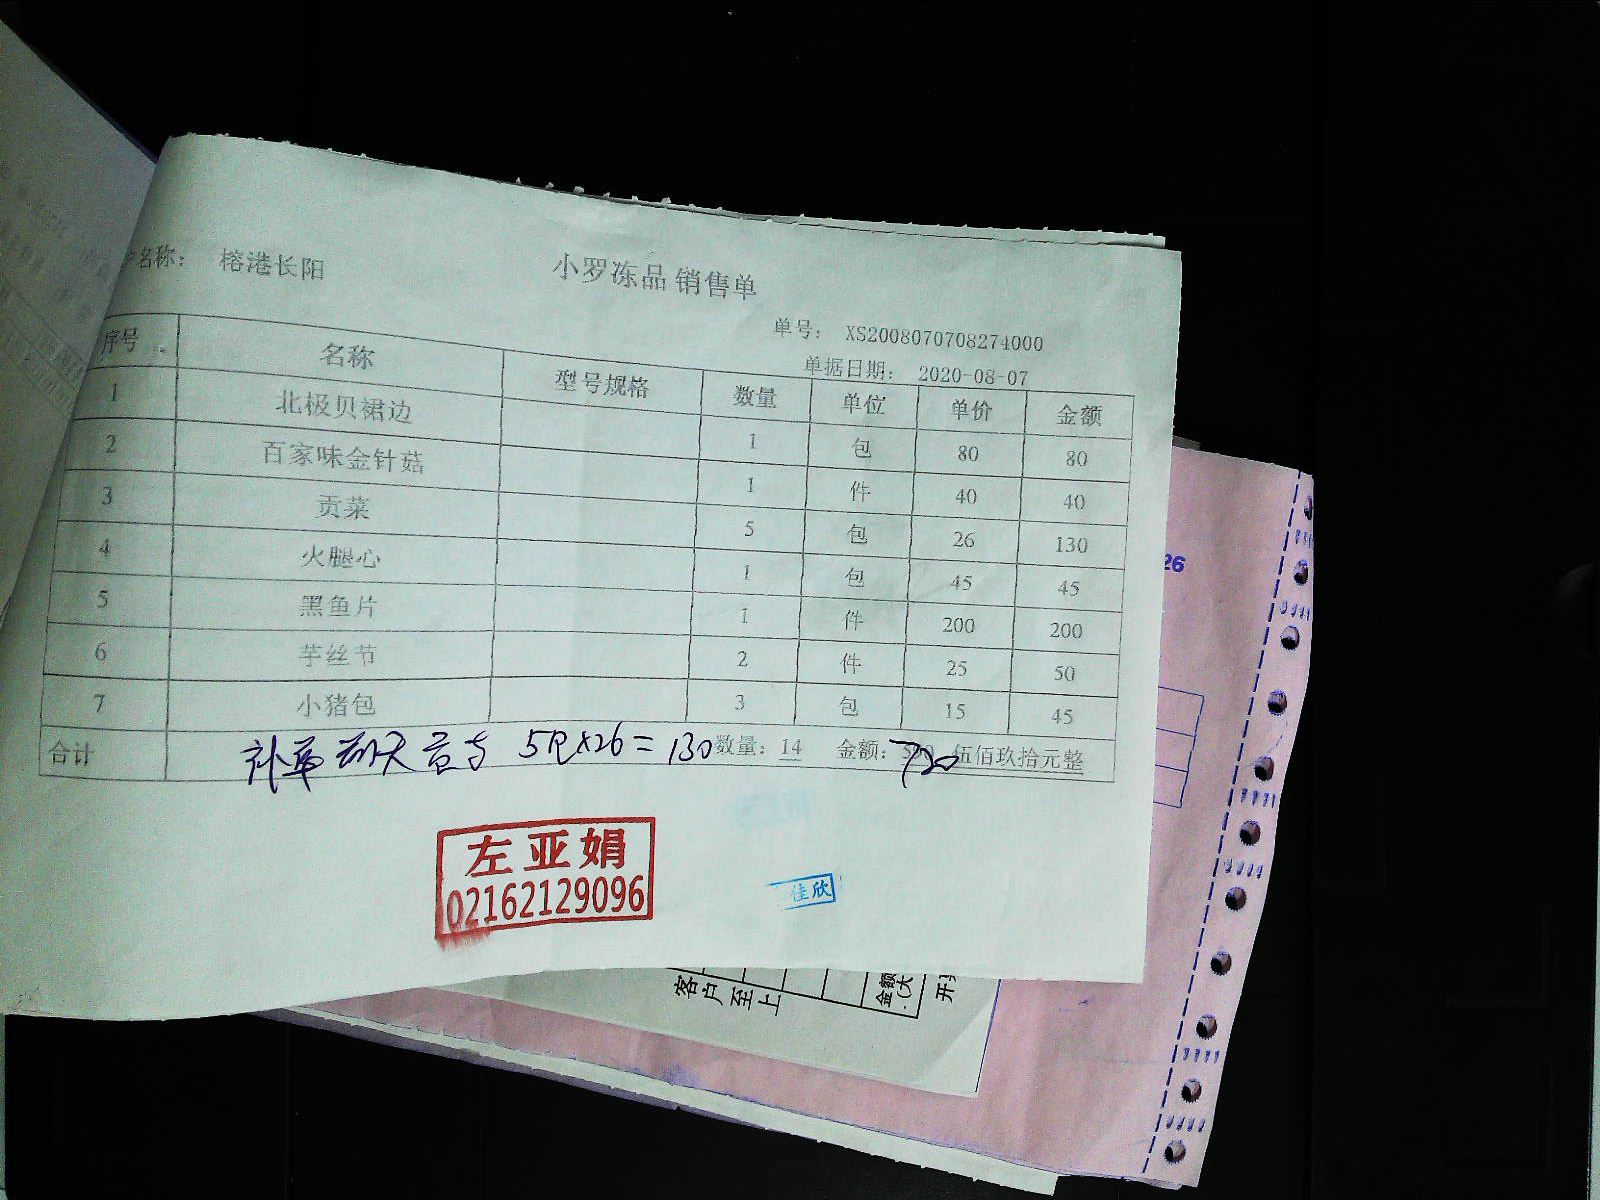 名称： 榕港长阳
小罗冻品 销售单
单号： XS2008070708274000
单据日期： 2020-08-07
序号 名称 型号规格 数量 单位 单价 金额
1 北极贝裙边 1 包 80 80
2 百家味金针菇 1 件 40 40
3 贡菜 5 包 26 130
4 火腿心 1 包 45 45
5 黑鱼片 1 件 200 200
6 芋丝节 2 件 25 50
7 小猪包 3 包 15 45
合计 数量：14 金额： 伍佰玖拾元整
补单 昨天 5包×26=130 720
左亚娟
02162129096
佳欣
26
客户至上
金额
(大
开